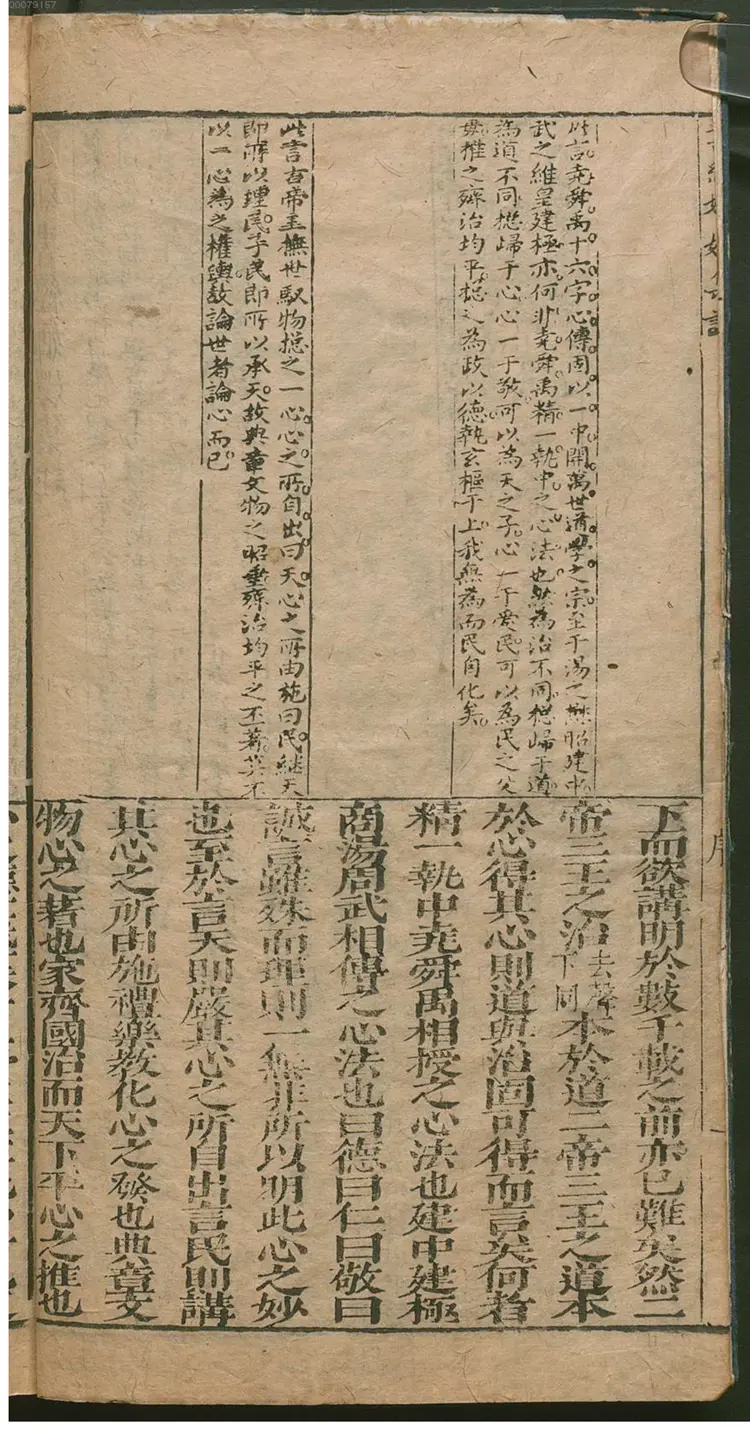 00079157
序
此訣堯舜禹十六字心傳固以一中開萬世道學之宗至于湯之懋昭建中
武之維皇建極亦何非堯舜禹精一執中之心法也然為治不同揔歸于道
為道不同揔歸于心心一于敬可以為天之子心一于愛民可以為民之父
母推之齊治均平揔之為政以德執玄樞于上我無為而民自化矣
此言古帝王撫世馭物揔之一心心之所自出曰天心之所由施曰民繼天
即所以理民子民即所以承天故典章文物之昭垂齊治均平之丕著莫不
以一心為之權輿故論世者論心而已
下而欲講明於數千載之前亦已難矣然二
帝三王之治去聲下同本於道二帝三王之道本
於心得其心則道與治固可得而言矣何者
精一執中堯舜禹相授之心法也建中建極
商湯周武相傳之心法也曰德曰仁曰敬曰
誠言雖殊而理則一無非所以明此心之妙
也至於言天則嚴其心之所自出言民則講
其心之所由施禮樂教化心之發也典章文
物心之著也家齊國治而天下平心之推也